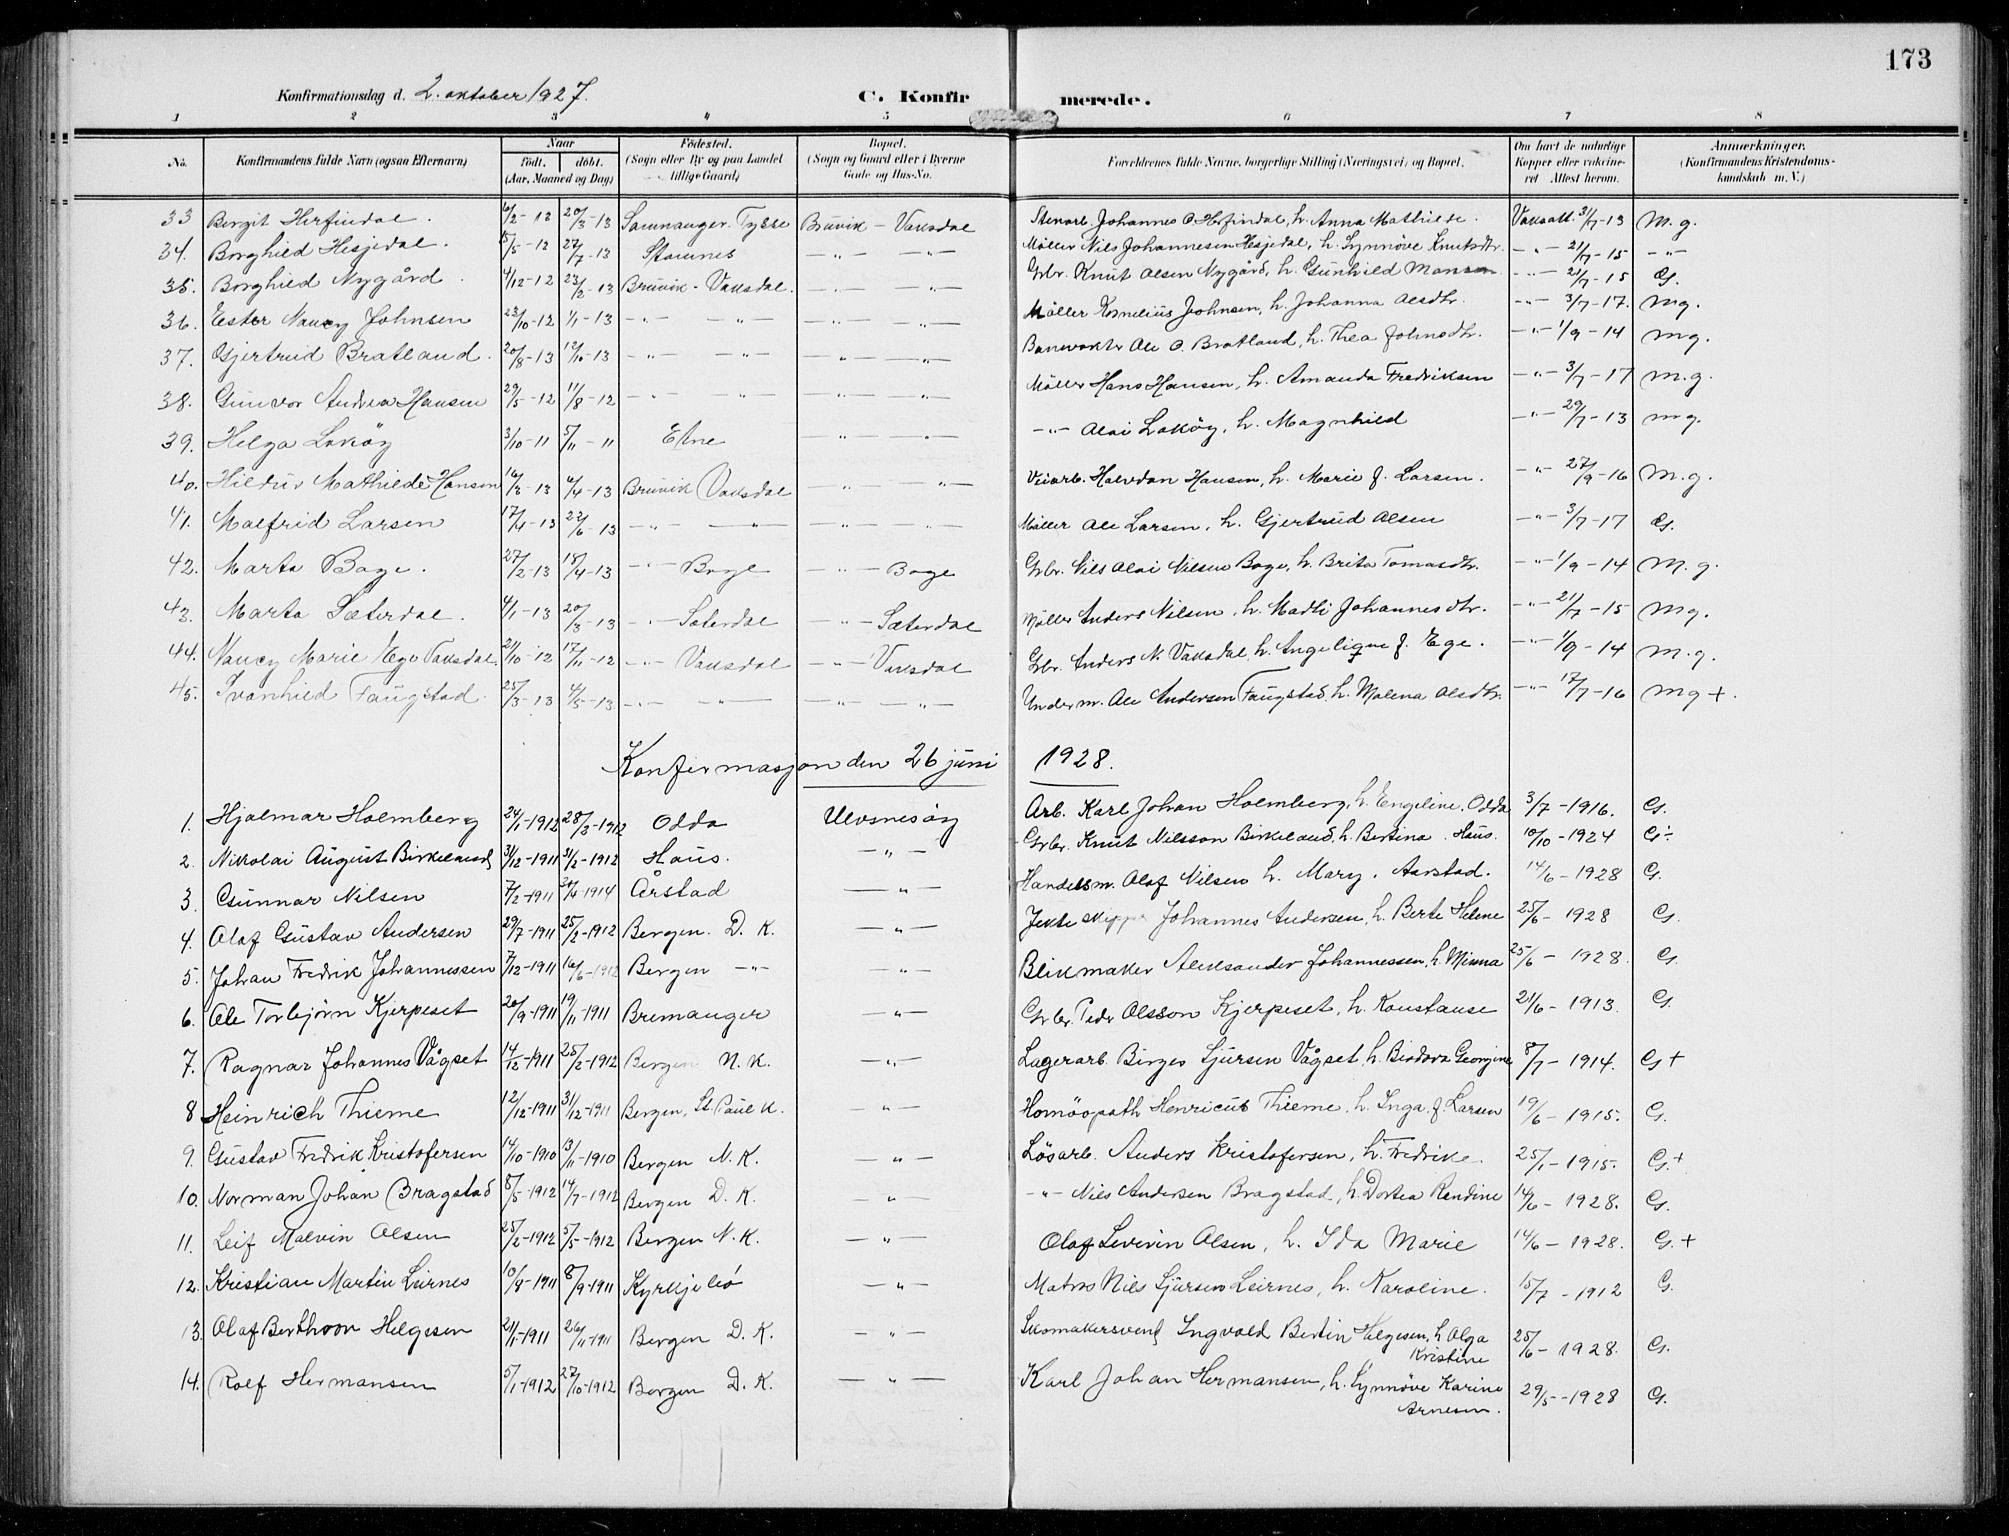 173
Konfirmationsdag d. 2. oktober 1927.
C. Konfirmerede.
1 2 3 4 5 6 7 8
No. Konfirmandens fulde Navn (ogsaa Efternavn) Naar født, døbt. (Aar, Maaned og Dag) Fødested. (Sogn eller By og paa Landet tillige Gaard) Bopæl. (Sogn og Gaard eller i Byerne Gade og Hus-No. Forældrenes fulde Navne, borgerlige Stilling (Næringsvei) og Bopæl. Om havt de naturlige Kopper eller vaksineret Attest herom. Anmærkninger. (Konfirmandens Kristendomskundskab m. V.)
33 Bergit Herfindal. 6/2-12 20/3-13 Samnanger. Tysse Bruvik - Vaksdal Stenarb. Johannes O. Herfindal, h. Anna Mathilde. Vaksatt. 3/7-13 M. g.
34. Borghild Hesjedal. 15/5-12 27/7-13 Stamnes -"- -"- Møller Nils Johannesen Hesjedal, h. Synnøve Knutsdtr. -"- 21/7-15 -"-
35. Borghild Nygård 4/12-12 23/2-13 Bruvik - Vaksdal. -"- -"- Grbr. Knut Olsen Nygård, h. Gunhild Monsen -"- 21/7-15 G.
36. Ester Nancy Johnsen 23/10-12 1/1-13 -"- -"- -"- -"- Møller Kornelius Johnsen, h. Johanna Olsdtr. -"- 3/7-17. Mg.
37. Gjertrud Bratland. 20/8-13 12/10-13 -"- -"- -"- -"- Banevokter Ole O. Bratland, h. Thea Johnsdtr. -"- 1/9-14 Mg.
38. Gunvor Andrea Hansen 29/5-12 11/8-12 -"- -"- -"- -"- Møller Hans Hansen, h. Amanda Fredriksen -"- 3/7-17 M.g.
39. Helga Lokøy 3/10-11 5/11-11 Etne -"- -"- -"- Olai Lokøy, h. Magnhild -"- 29/7-13 mg.
40. Hildur Mathilde Hansen 16/3-13 6/4-13 Bruvik Vaksdal -"- -"- Veiarb. Halvdan Hansen, h. Marie f. Larsen. -"- 27/9-16 M.g.
41. Malfrid Larsen 17/4-13 22/6-13 -"- -"- -"- -"- Møller Ole Larsen, h. Gjertrud Olsen -"- 3/7-17 G.
42. Marta Boge. 27/2-13 18/4-13 -"- Boge -"- Boge Grbr. Nils Olai Nilsen Boge, h. Brita Tomasdtr. -"- 1/9-14 M.g.
43. Marta Sæterdal. 4/1-13 20/3-13 -"- Sæterdal -"- Sæterdal Møller Anders Nilsen, h. Madli Johannesdtr. -"- 21/7-15 Mg.
44. Nancy Marie Ege Vaksdal. 21/10-12 17/11-12 -"- Vaksdal -"- Vaksdal Grbr. Anders N. Vaksdal, h. Angelique f. Ege. -"- 1/9-14 M.g.
45. Svanhild Faugstad. 25/3-13 4/5-13 -"- -"- -"- -"- Underm. Ole Andersen Faugstad, h. Malena Olsdtr. -"- 17/7-16 Mg +.
Konfirmasjon den 26 juni 1928.
1. Hjalmar Holmberg 24/1-1912 28/3-1912 Odda Ulvsnesøy Arb. Karl Johan Holmberg, h. Engeline. Odda 3/7-1916. G.
2. Nikolai August Birkeland 31/12-1911 31/2-1912 Haus. -"- Grbr. Knut Nilsson Birkeland, h. Bertina. Haus. 10/10-1924 G÷
3. Gunnar Nilsen 7/2-1911 1914 Årstad -"- Handelsm. Olaf Nilsen h. Mary. Aarstad. 14/6-1928 G.
4. Olaf Gustav Andersen 29/7-1911 25/2-1912 Bergen. D. K. -"- Jekteskipper Johannes Andersen, h. Berte Helene 25/6-1928 G.
5. Johan Fredrik Johannessen 7/12-1911 16/6-1912 Bergen -"- -"- Blikmaker Aleksander Johannessen, h. Minna 25/6-1928. G.
6. Ole Torbjørn Kjerpeset 20/9-1911 19/11-1911 Bremanger -"- Grbr. Peder Olsson Kjerpeset, h. Konstanse 21/6-1913. G.
7. Ragnar Johannes Vågset 14/12-1911 25/2-1912 Bergen N. K. -"- Lagerarb. Birger Sjursen Vågset, h. Georgine 8/7-1914. G +
8 Heinrich Thieme 12/12-1911 31/12-1911 Bergen, St. Paul K. -"- Homøopath Henricus Thieme, h. Inga f. Larsen 19/6-1915. G.
9. Gustav Fredrik Kristofersen 14/10-1910 13/11-1910 Bergen N. K. -"- Løsarb. Anders Kristofersen, h. Fredrike. 25/1-1915. G. +
10. Norman Johan Bragstad 8/5-1912 14/7-1912 Bergen D. K. -"- -"- Nils Andersen Bragstad, h. Dortea Randine 14/6-1928. G.
11. Leif Malvin Olsen 25/2-1912 5/5-1912 Bergen N. K. -"- Olaf Severin Olsen, h. Ida Marie 14/6-1928. G. +
12. Kristian Martin Leirnes 10/8-1911 8/9-1911 Kyrkjebø -"- Matros Nils Sjursen Leirnes, h. Karoline. 15/7-1912 G.
13. Olaf Berthoon Helgesen 21/1-1911 26/11-1911 Bergen D. K. -"- Skomakersvend Ingvald Bertin Helgesen, h. Olga Kristine 25/6-1928. G.
14. Rolf Hermansen 5/1-1912 27/10-1912 Bergen D. K. -"- Karl Johan Hermansen, h. Synnøve Karine Arnesen. 29/5-1928 G.